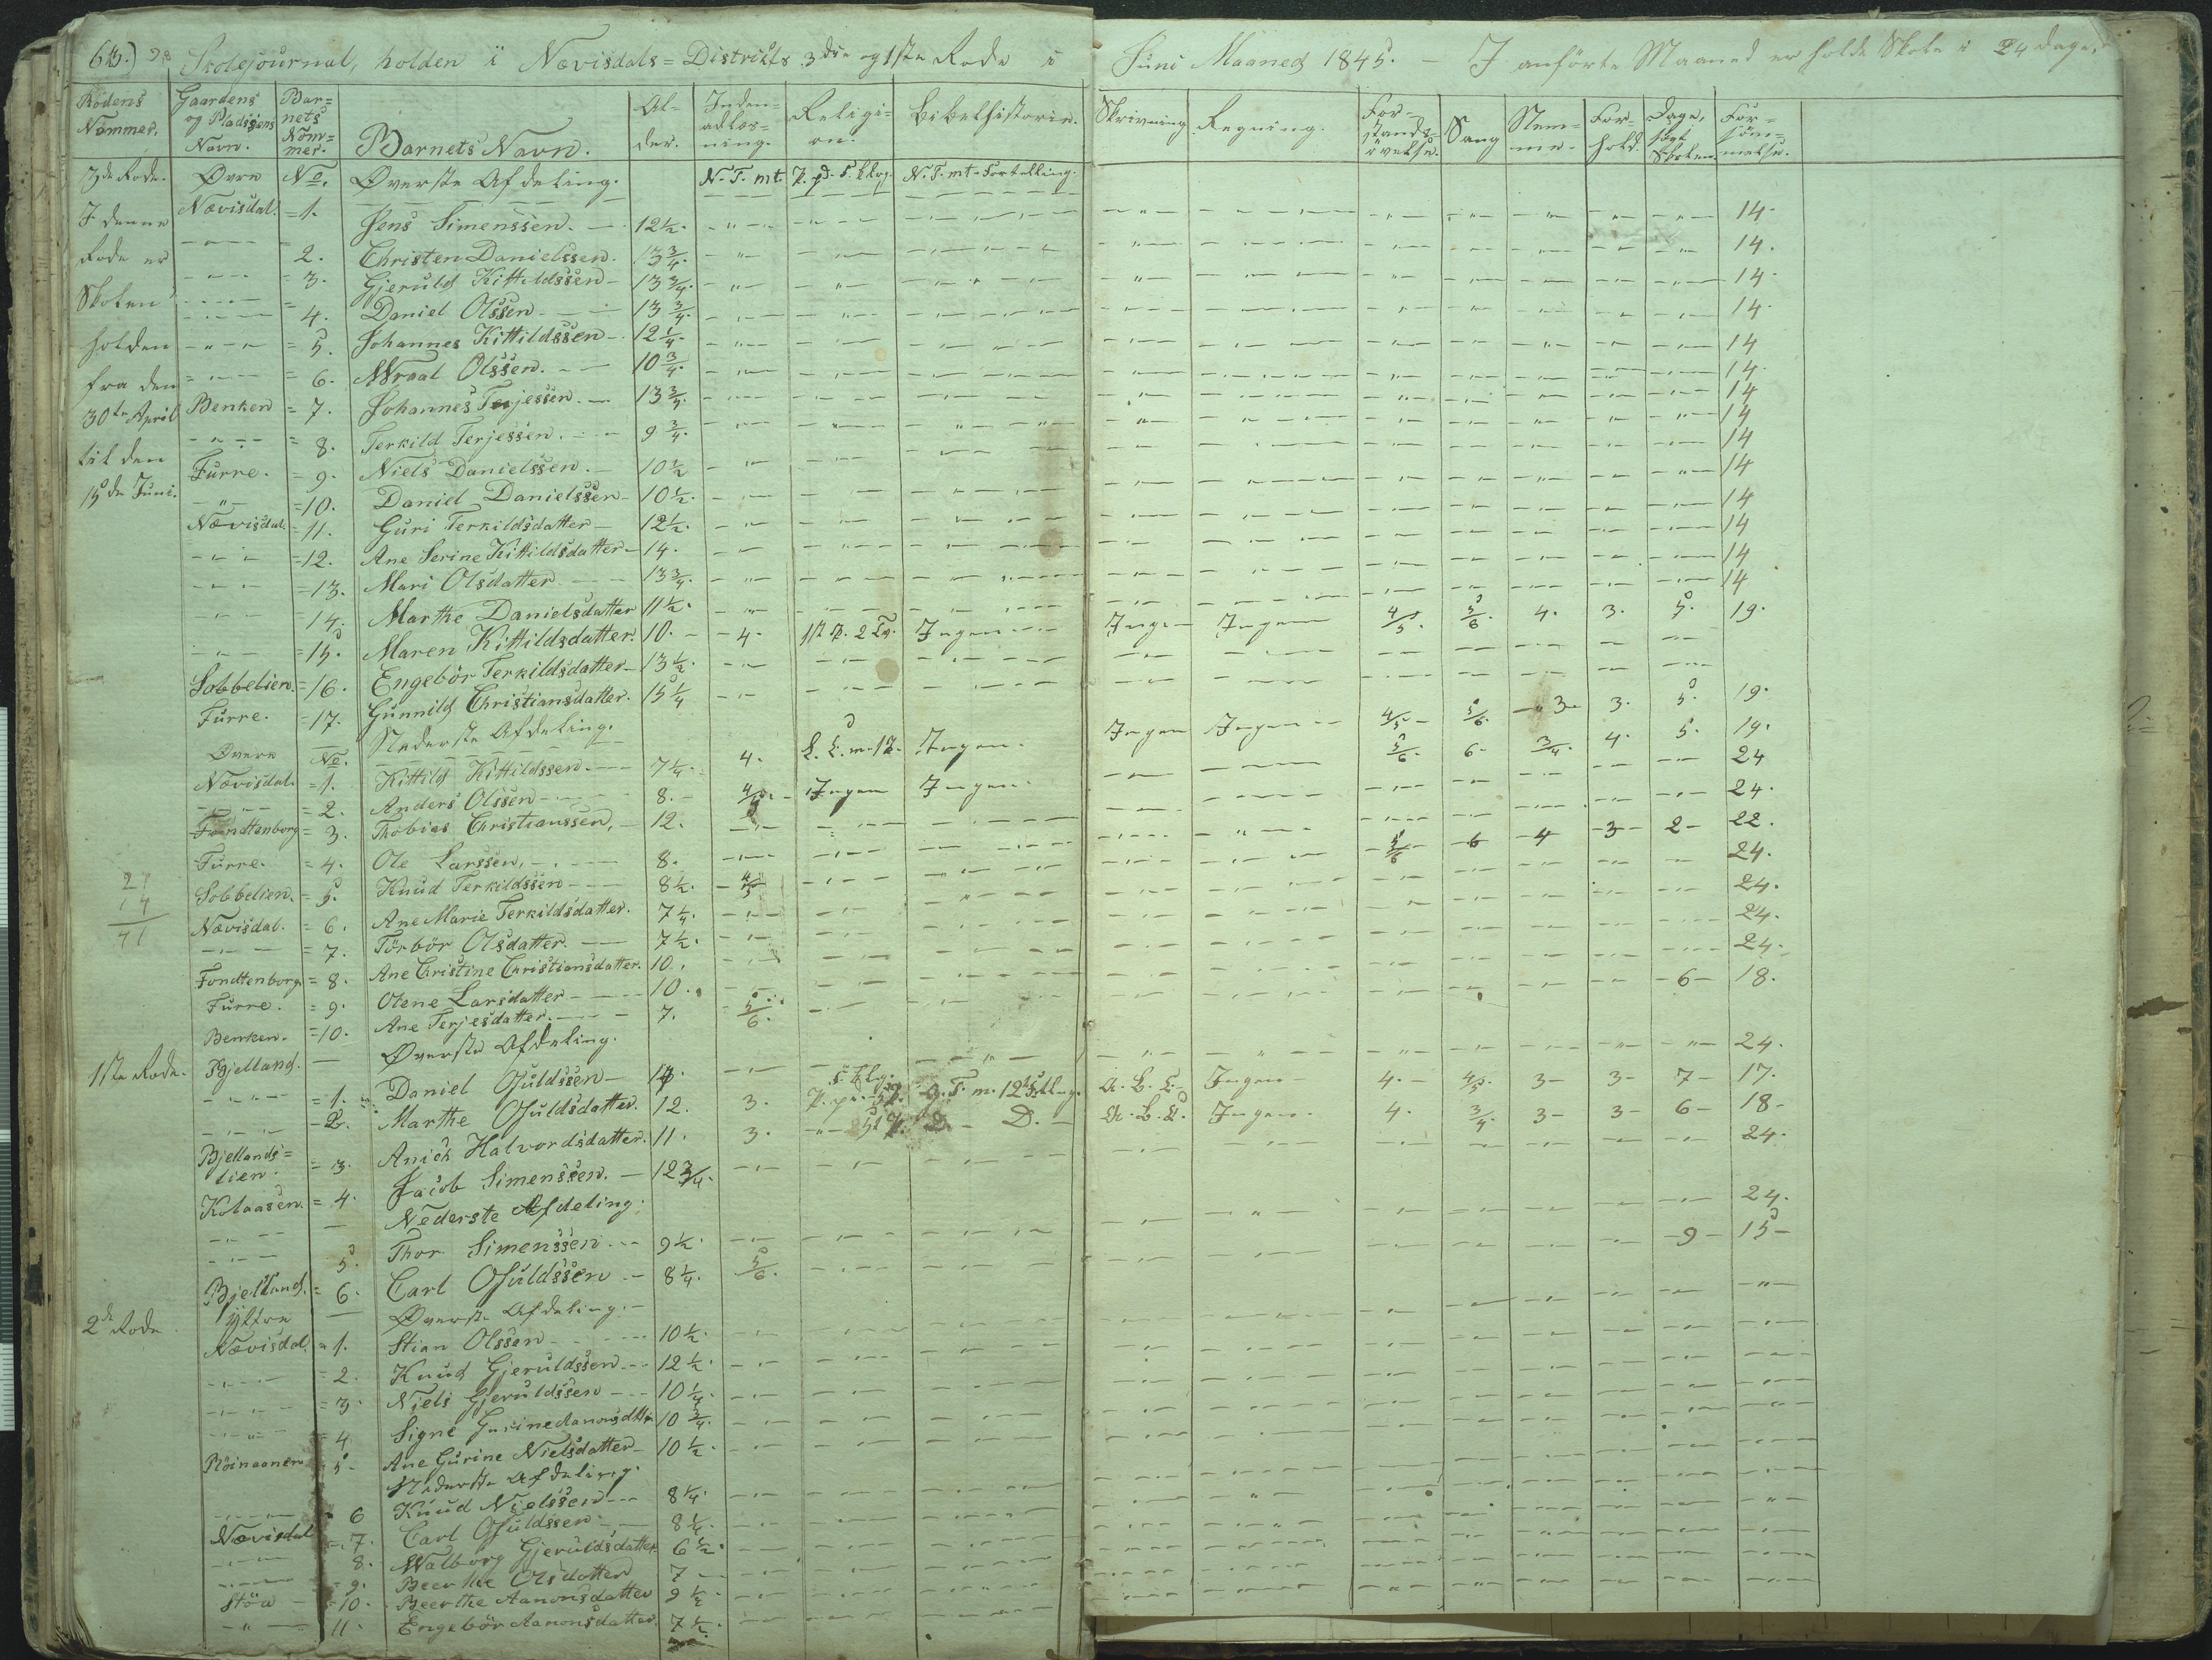 64.) Skolejournal, holden i Nævisdals=Distrikts 3die og 1ste Rode i Juni Maaned 1845. — I anførte Maaned er holdt Skole i 24 dage.
Rodens Nommer. Gaardens og Pladsens Navn. Barnets Nommer. Barnets Navn. Alder. Indenadlæsning. Religion. Bibelhistorie. Skrivning Regning. Forstandsøvelse. Sang Stemme. Forhold. Dage, søgt Skolen. Forsømmelse.
3die Rode. Øvre No. Øverste Afdeling. N. T. mt. N. T. mt. Fortælling.
I denne Nævisdal. =1. Jens Simenssen. 12½. 14.
Rode er 2. Christen Danielssen. 13¾. 14.
3. Gjeruld Kittildssen 13¾. 14.
Skolen 4. Daniel Olssen 13¾. 14.
holden = 5. Johannes Kittildssen 12¼. 14
fra den = 6. Wraal Olssen. 10¾. 14.
30te April Benken = 7. Johannes Terjessen. 13¾. 14
til den = 8. Terkild Terjessen. 9¾. 14
15de Juni. Furre. = 9. Niels Danielssen. 10½ 14
=10. Daniel Danielssen 10½. 14
Nævisdal. =11. Guri Terkildsdatter 12½. 14
=12. Ane Serine Kittildsdatter 14. 14
=13. Mari Olsdatter 13¾. 14
=14. Marthe Danielsdatter 11½. 14
=15. Maren Kittildsdatter. 10. 4. Ingen Ingen Ingen 4/5. 5/6. 4. 3. 5. 19.
Sobbelien. =16. Engebør Terkildsdatter 13½.
Furre. =17. Gunnild Christiansdatter. 15¼
Øvere No. Nederste Afdeling.
Nævisdal. =1. Kittild Kittildssen. 7¼. 4. Ingen. Ingen Ingen 4/5 5/6. 3 3. 5. 19.
= 2. Anders Olssen 8. 4/5. Ingen Ingen. 5/6. 6. 3/4. 4. 5. 19.
Fondtenborg = 3. Thobias Christianssen, 12. 24
Furre. = 4. Ole Larssen, 8. 24.
Sobbelien. = 5. Knud Terkildssen 8½. 4/5 5/6 6 4 3 2 22.
Nævisdal. = 6. Ane Marie Terkildsdatter. 7¼. 24.
= 7. Torbør Olsdatter. 7½. 24.
Fondtenborg. = 8. Ane Christine Christiansdatter. 10. 24.
Furre. = 9. Olene Larsdatter 10. 24.
Benken. =10. Ane Terjesdatter. 7. 5/6. 6 18.
1ste Rode. Bjelland. Øverste Afdeling.
= 1. Daniel Osuldssen 14 24.
2. Marthe Osuldsdatter. 12. 3. A. B. C. Ingen 4. 4/5. 3 3 7 17.
Bjellandslien. = 3. Anich Halvordsdatter. 11. 3. D. A. B. C. Ingen. 4. 3/4. 3 3 6 18
Kolaasen. = 4. Jacob Simenssen. 12¾. 24.
Nederste Afdeling.
5. Thor Simenssen 9½. 24.
Bjelland. = 6. Carl Osuldssen 8¼. 5/6. 9 15
2de Rode Yttre Øverste Afdeling.
Nævisdal. = 1. Stian Olssen 10½.
= 2. Knud Gjeruldssen 12½.
= 3. Niels Gjeruldssen 10¼.
= 4 Signe Gurine Aanonsdttr 10¾.
5 Ane Gurine Nielsdatter 10½.
Nederste Afdeling.
6 Knud Nielssen 8¼.
Nævisdal 7. Carl Osuldssen 8¼.
8. Walborg Gjeruldsdatter 6½.
= 9. Beerthe Olsdatter 7
Støa =10. Beerthe Aanonsdatter 9¼
11. Engebør Aanonsdatter. 7½.